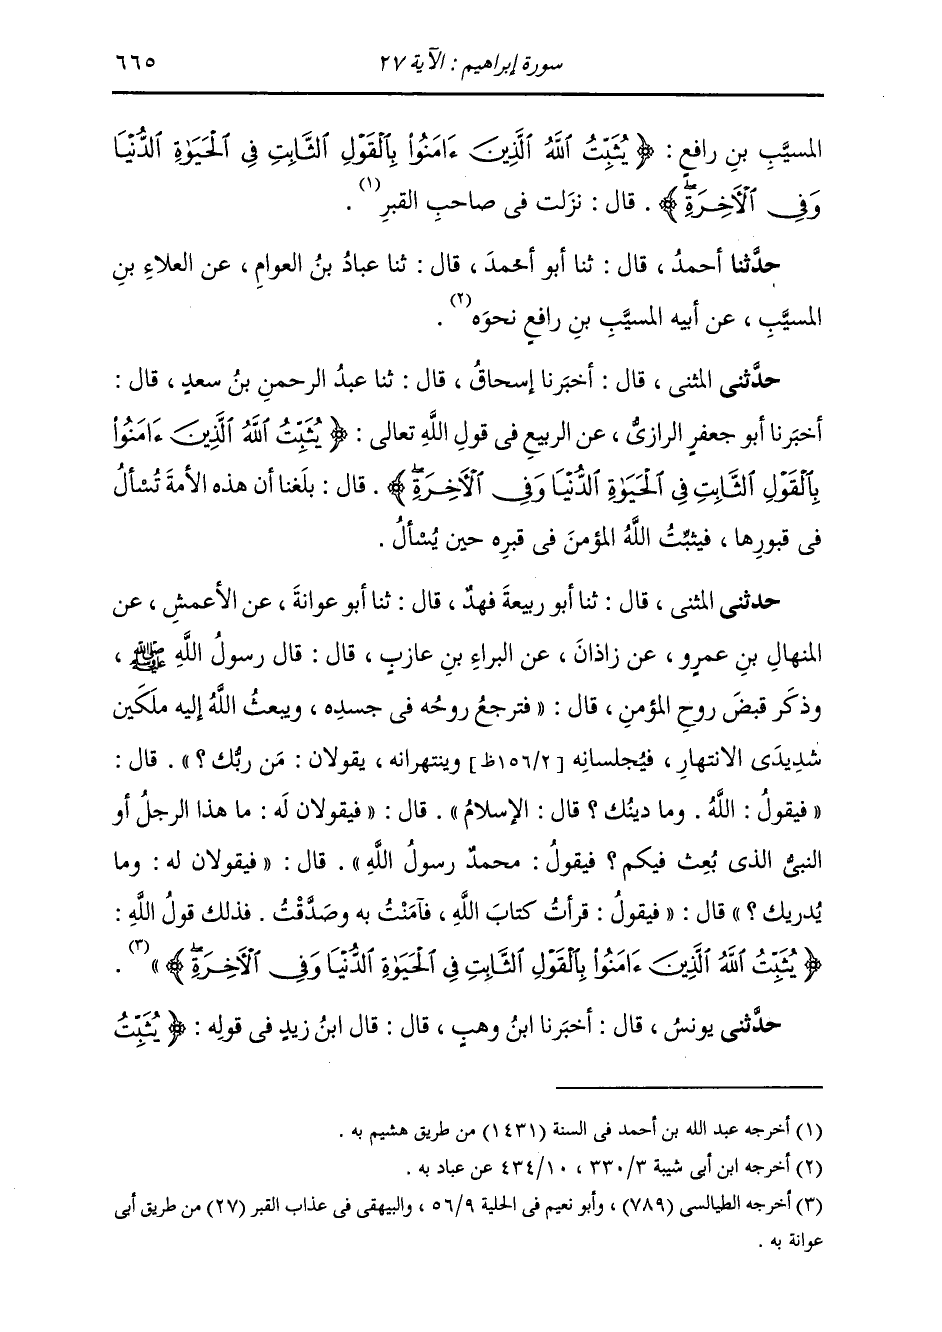 سورة إبراهيم : الآية ٢٧ ٦٦٥
المسيَّبِ بنِ رافعٍ : ﴿ يُثَبِّتُ ٱللَّهُ ٱلَّذِينَ ءَامَنُواْ بِٱلْقَوْلِ ٱلثَّابِتِ فِى ٱلْحَيَوٰةِ ٱلدُّنْيَا
وَفِى ٱلْأَخِرَةِۖ ﴾ . قال : نزَلت فى صاحبِ القبرِ(١) .
حدَّثنا أحمدُ ، قال : ثنا أبو أحمدَ ، قال : ثنا عبادُ بنُ العوامِ ، عن العلاءِ بنِ
المسيَّبِ ، عن أبيه المسيَّبِ بنِ رافعٍ نحوَه(٢) .
حدَّثنى المثنى ، قال : أخبَرنا إسحاقُ ، قال : ثنا عبدُ الرحمنِ بنُ سعدٍ ، قال :
أخبَرنا أبو جعفرٍ الرازىُّ ، عن الربيعِ فى قولِ اللَّهِ تعالى : ﴿ يُثَبِّتُ ٱللَّهُ ٱلَّذِينَ ءَامَنُواْ
بِٱلْقَوْلِ ٱلثَّابِتِ فِى ٱلْحَيَوٰةِ ٱلدُّنْيَا وَفِى ٱلْأَخِرَةِۖ ﴾ . قال : بلَغنا أن هذه الأمةَ تُسْألُ
فى قبورِها ، فيثبِّتُ اللَّهُ المؤمنَ فى قبرِه حين يُسْألُ .
حدثنى المثنى ، قال : ثنا أبو ربيعةَ فهدٌ ، قال : ثنا أبو عوانةَ ، عن الأعمشِ ، عن
المنهالِ بنِ عمرٍو ، عن زاذانَ ، عن البراءِ بنِ عازبٍ ، قال : قال رسولُ اللَّهِ ﷺ ،
وذكَر قبضَ روحِ المؤمنِ ، قال : « فترجعُ روحُه فى جسدِه ، ويبعثُ اللَّهُ إليه ملَكَين
شدِيدَى الانتهارِ ، فيُجلسانِه [١٥٦/٢ظ] وينتهرانه ، يقولان : مَن ربُّك ؟ » . قال :
« فيقولُ : اللَّهُ . وما دينُك ؟ قال : الإسلامُ » . قال : « فيقولان لَه : ما هذا الرجلُ أو
النبىُّ الذى بُعِث فيكم ؟ فيقولُ : محمدٌ رسولُ اللَّهِ » . قال : « فيقولان له : وما
يُدريك ؟ » قال : « فيقولُ : قرأتُ كتابَ اللَّهِ ، فآمَنْتُ به وصَدَّقْتُ . فذلك قولُ اللَّهِ :
﴿ يُثَبِّتُ ٱللَّهُ ٱلَّذِينَ ءَامَنُواْ بِٱلْقَوْلِ ٱلثَّابِتِ فِى ٱلْحَيَوٰةِ ٱلدُّنْيَا وَفِى ٱلْأَخِرَةِۖ ﴾ »(٣) .
حدَّثنى يونسُ ، قال : أخبَرنا ابنُ وهبٍ ، قال : قال ابنُ زيدٍ فى قولِه : ﴿ يُثَبِّتُ
(١) أخرجه عبد الله بن أحمد فى السنة (١٤٣١) من طريق هشيم به .
(٢) أخرجه ابن أبى شيبة ٣٣٠/٣ ، ٤٣٤/١٠ عن عباد به .
(٣) أخرجه الطيالسى (٧٨٩) ، وأبو نعيم فى الحلية ٥٦/٩ ، والبيهقى فى عذاب القبر (٢٧) من طريق أبى
عوانة به .